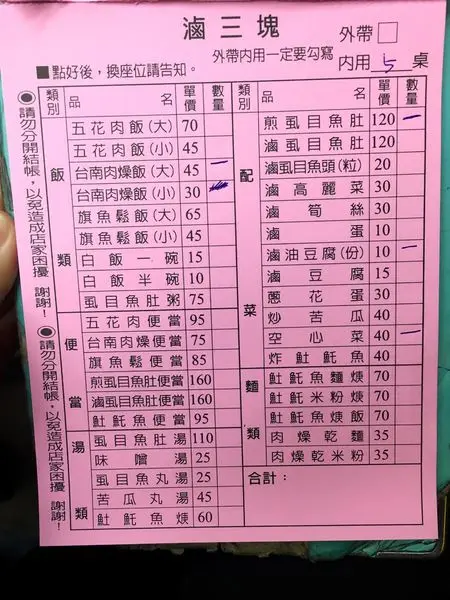 滷三塊
外帶 □
外帶內用一定要勾寫
■點好後，換座位請告知。
內用 5 桌
●請勿分開結帳，以免造成店家困擾 謝謝!
●請勿分開結帳，以免造成店家困擾 謝謝!
類別 品名 單價 數量
飯類
五花肉飯(大) 70
五花肉飯(小) 45
台南肉燥飯(大) 45 一
台南肉燥飯(小) 30
旗魚鬆飯(大) 65
旗魚鬆飯(小) 45
白飯一碗 15
白飯半碗 10
虱目魚肚粥 75
便當
五花肉便當 95
台南肉燥便當 75
旗魚鬆便當 85
煎虱目魚肚便當 160
滷虱目魚肚便當 160
魠魚便當 95
湯類
虱目魚肚湯 110
味噌湯 25
虱目魚丸湯 25
苦瓜丸湯 45
魠魚焿 60
類別 品名 單價 數量
配菜
煎虱目魚肚 120 一
滷虱目魚肚 120
滷虱目魚頭(粒) 20
滷高麗菜 30
滷筍絲 30
滷蛋 10
滷油豆腐(份) 10 一
滷豆腐 15
蔥花蛋 30
炒苦瓜 40
空心菜 40 一
炸魠魚 40
麵類
魠魚麵焿 70
魠米粉焿 70
魠魚焿飯 70
肉燥乾麵 35
肉燥乾米粉 35
合計：